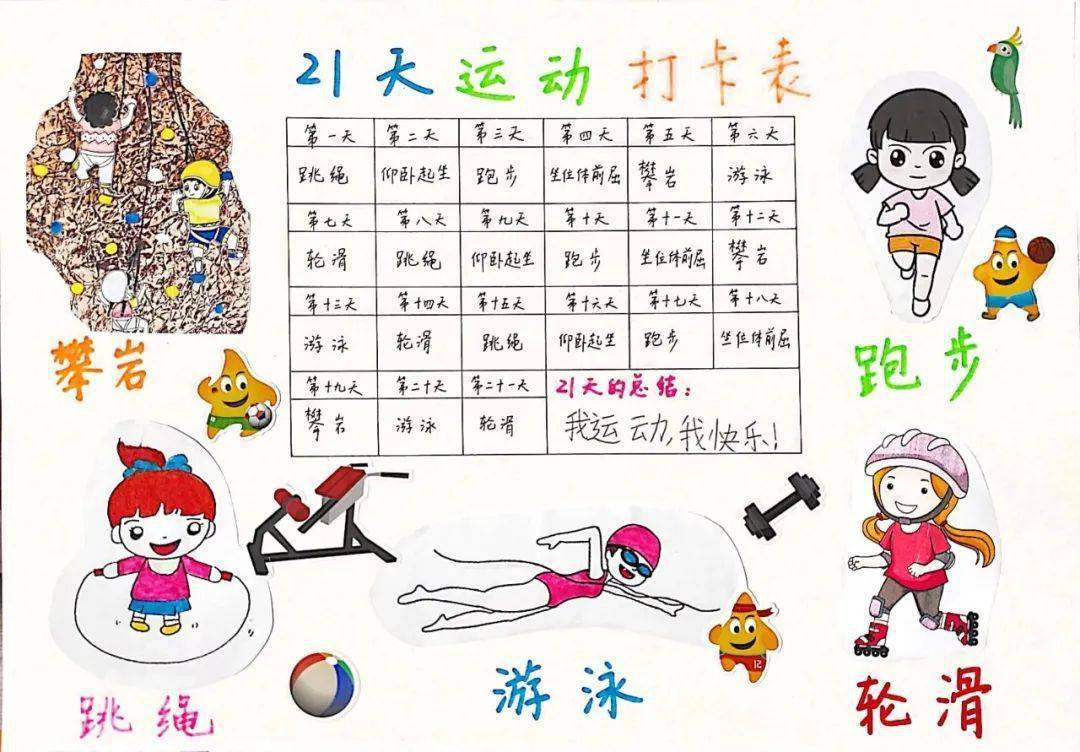 21天运动打卡表
第一天 第二天 第三天 第四天 第五天 第六天
跳绳 仰卧起坐 跑步 坐位体前屈 攀岩 游泳
第七天 第八天 第九天 第十天 第十一天 第十二天
轮滑 跳绳 仰卧起坐 跑步 坐位体前屈 攀岩
第十三天 第十四天 第十五天 第十六天 第十七天 第十八天
游泳 轮滑 跳绳 仰卧起坐 跑步 坐位体前屈
第十九天 第二十天 第二十一天 21天的总结:
攀岩 游泳 轮滑 我运动,我快乐!
攀岩
跑步
12
跳绳
游泳
轮滑